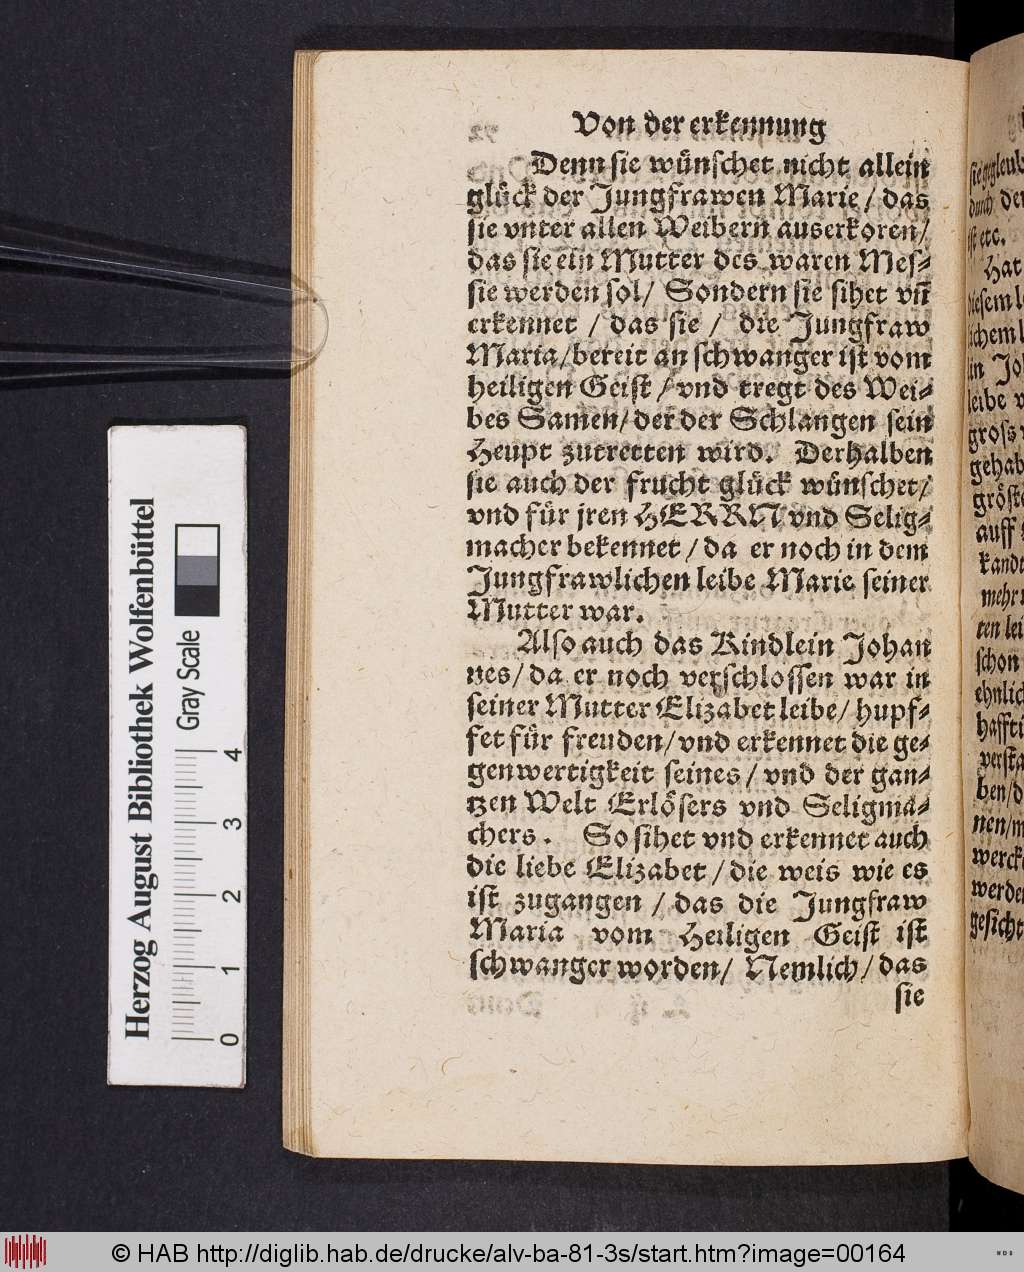 Von der erkennung
Denn sie wünschet nicht allein
glück der Jungfrawen Marie / das
sie vnter allen Weibern auserkoren /
das sie ein Mutter des waren Mes-
sie werden sol / Sondern sie sihet vñ
erkennet / das sie / die Jungfraw
Maria / bereit an schwanger ist vom
heiligen Geist / vnd tregt des Wei-
bes Samen / der der Schlangen sein
Heupt zutretten wird. Derhalben
sie auch der frucht glück wünschet /
vnd für jren HERRN vnd Selig-
macher bekennet / da er noch in dem
Jungfrawlichen leibe Marie seiner
Mutter war.
Also auch das Kindlein Johan
nes / da er noch verschlossen war in
seiner Mutter Elizabet leibe / hupf-
fet für freuden / vnd erkennet die ge-
genwertigkeit seines / vnd der gan-
tzen Welt Erlösers vnd Seligma-
chers. So sihet vnd erkennet auch
die liebe Elizabet / die weis wie es
ist zugangen / das die Jungfraw
Maria vom Heiligen Geist ist
schwanger worden / Nemlich / das
sie
durch
ist etc.
Hat
leibe
gros
auff
mehr
schon
werden
gesicht
Herzog August Bibliothek Wolfenbüttel
Gray Scale
0 1 2 3 4
© HAB http://diglib.hab.de/drucke/alv-ba-81-3s/start.htm?image=00164